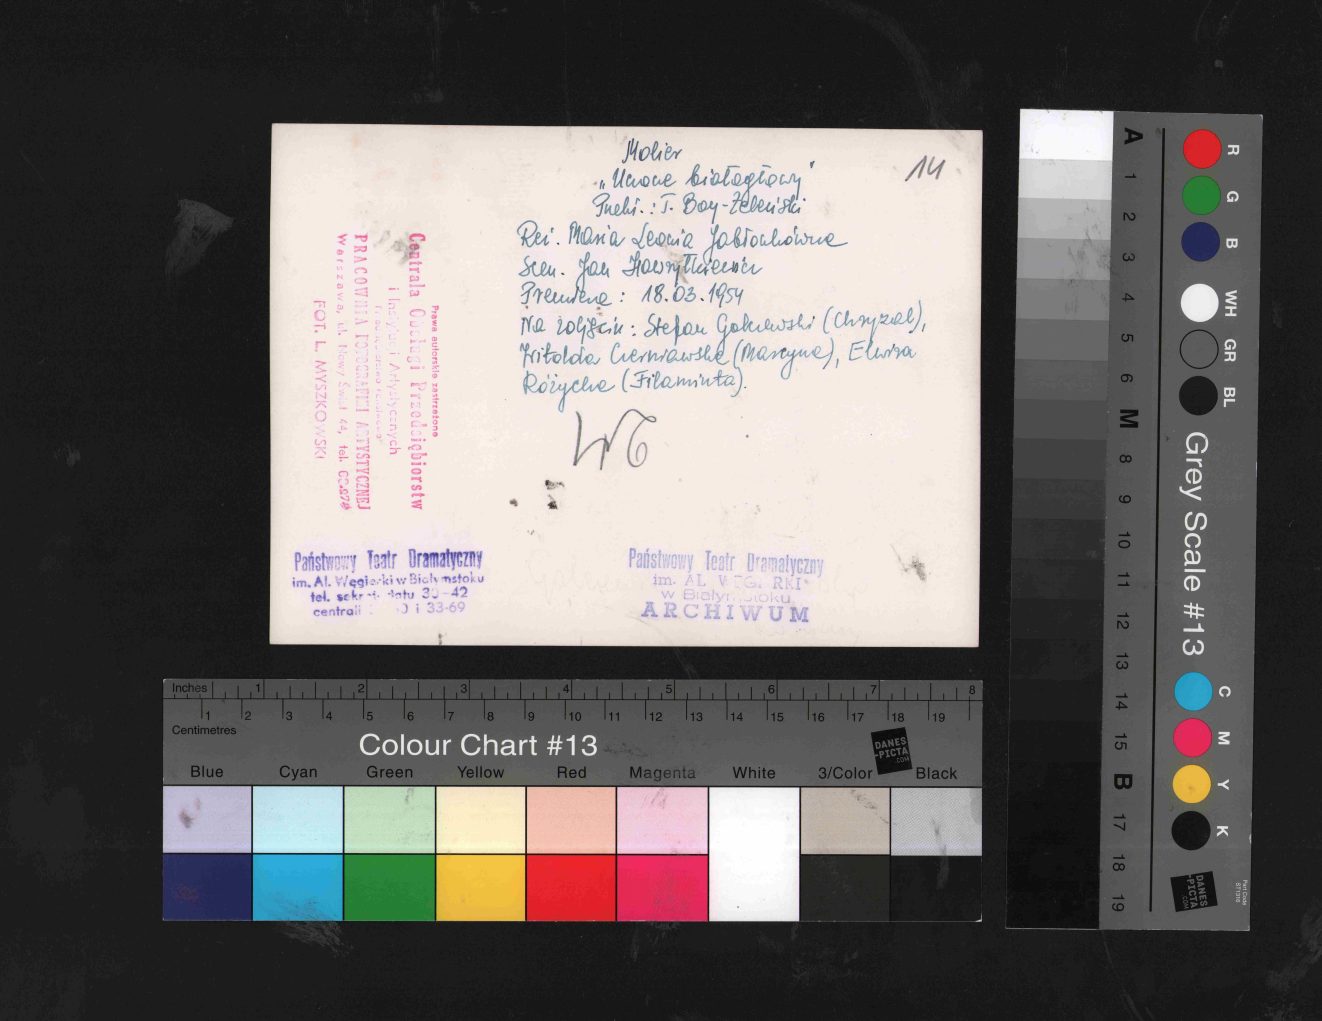 Molier
„Uczone białogłowy"
Przekł.: T. Boy-Żeleński
Reż. Maria Leonia Jabłonkówna
Scen. Jan Hawryłkiewicz
Premiera: 18.03.1954
Na zdjęciu: Stefan (Chryzal),
Witolda Czerniawska (Marcyna), Elwira
Różycka (Filaminta).
14
Prawa autorskie zastrzeżone
Centrala Obsługi Przedsiębiorstw
i Instytucji Artystycznych
PRACOWNIA FOTOGRAFII ARTYSTYCZNEJ
Warszawa, ul. Nowy Świat 44, tel.
FOT. L. MYSZKOWSKI
Państwowy Teatr Dramatyczny
im. Al. Węgierki w Białymstoku
tel. sekretariatu 30-42
centrali i 33-69
Państwowy Teatr Dramatyczny
im. AL. WĘGIERKI
w Białymstoku
ARCHIWUM
Inches 1 2 3 4 5 6 7 8
1 2 3 4 5 6 7 8 9 10 11 12 13 14 15 16 17 18 19
Centimetres
Colour Chart #13
DANES
-PICTA
.COM
Blue Cyan Green Yellow Red Magenta White 3/Color Black
A 1 2 3 4 5 6 M 8 9 10 11 12 13 14 15 B 17 18 19
R G B WH GR BL
Grey Scale #13
C M Y K
DANES
-PICTA
.COM